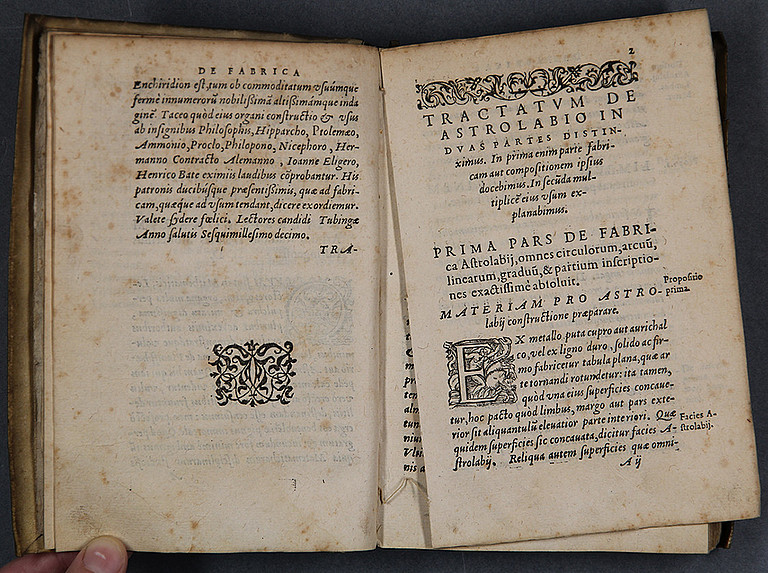 DE FABRICA
Enchiridion est, tum ob commoditatum vsuúmque
fermè innumerorũ nobilissimã altissimámque inda
ginẽ. Taceo quòd eius organi constructio & vsus
ab insignibus Philosophis, Hipparcho, Ptolemæo,
Ammonio, Proclo, Philopono, Nicephoro, Her-
manno Contracto Alemanno, Ioanne Eligero,
Henrico Bate eximiis laudibus cõprobantur. His
patronis ducibúsque præsentissimis, quæ ad fabri-
cam, quæque ad vsum tendant, dicere exordiemur.
Valete sydere fœlici. Lectores candidi Tubingæ
Anno salutis Sesquimillesimo decimo.
TRA-
2
TRACTATVM DE
ASTROLABIO IN
DVAS PARTES DISTIN-
ximus. In prima enim parte fabri-
cam aut compositionem ipsius
docebimus. In secũda mul-
tiplicẽ eius vsum ex-
planabimus.
PRIMA PARS DE FABRI-
ca Astrolabij, omnes circulorum, arcuũ,
linearum, graduũ, & partium inscriptio-
nes exactissimè absoluit.
MATERIAM PRO ASTRO-
labij constructione præparare.
Propositio
prima.
EX metallo puta cupro aut aurichal
co, vel ex ligno duro, solido ac fir-
mo fabricetur tabula plana, quæ ar
te tornandi rotundetur: ita tamen,
quòd vna eius superficies concaue-
tur, hoc pacto quòd limbus, margo aut pars exte-
rior sit aliquantulũ eleuatior parte interiori. Quæ
quidem superficies sic concauata, dicitur facies A-
strolabij. Reliqua autem superficies quæ omni-
Facies A-
strolabij.
A ij